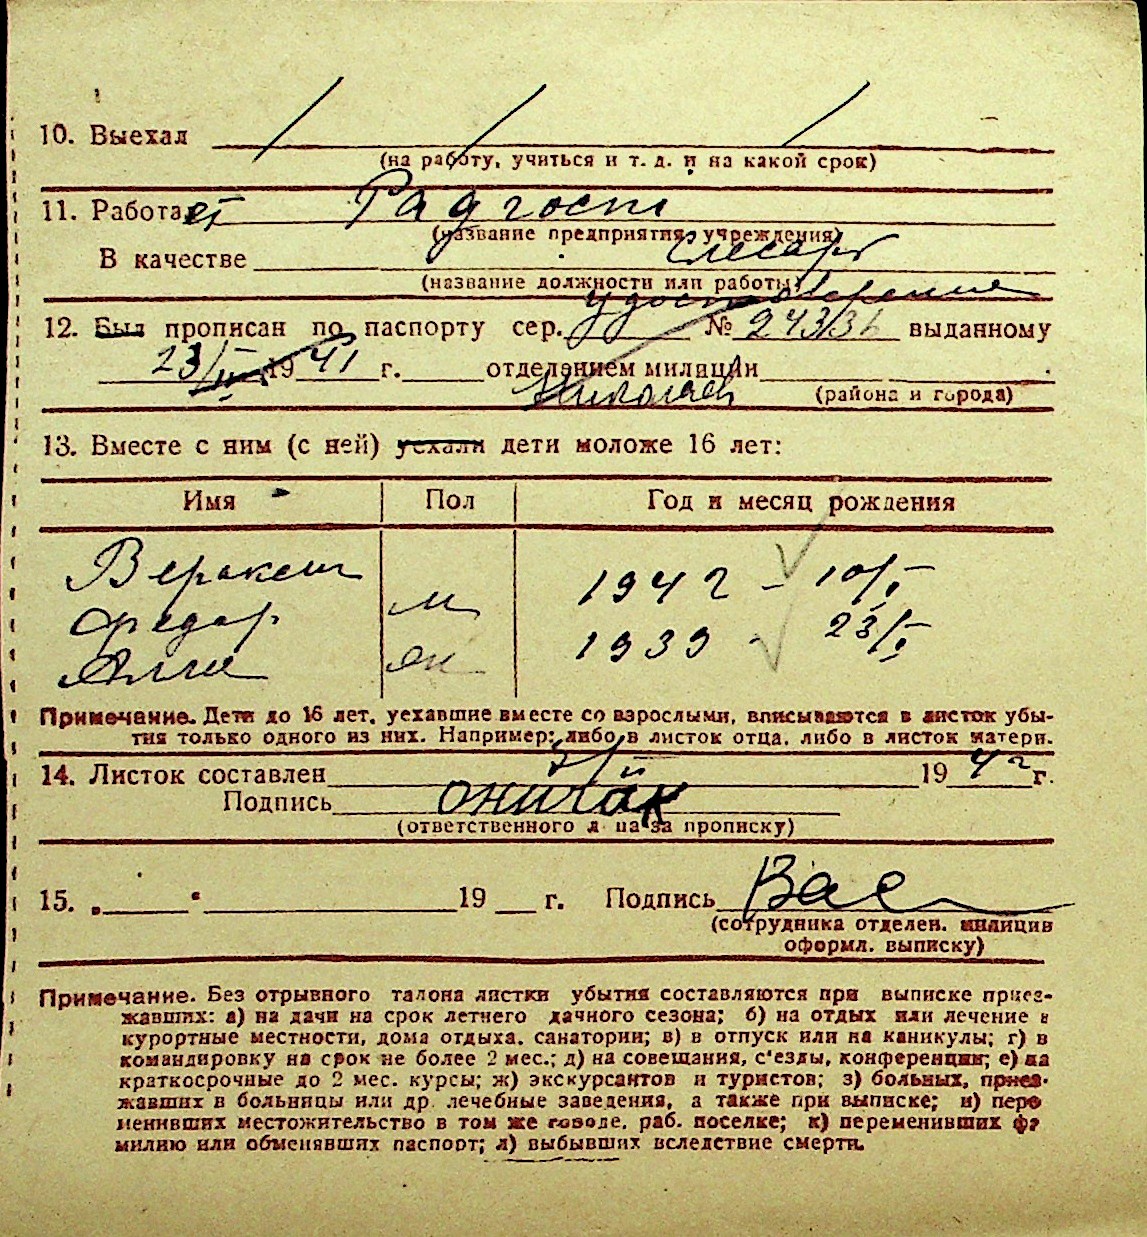 10. Выехал
(на работу, учиться и т. д. и на какой срок)
11. Работает
(название предприятия, учреждения)
В качестве слесарь
(название должности или работы)
удостоверение
12. Был прописан по паспорту сер. № 24336 выданному
23/IV 1941 г. отделением милиции
Николаев (района и города)
13. Вместе с ним (с ней) уехали дети моложе 16 лет:
Имя Пол Год и месяц рождения
1942 - 10/I
Федор м 1939 - 23/I
Алла
Примечание. Дети до 16 лет, уехавшие вместе со взрослыми, вписываются в листок убы-
тия только одного из них. Например: либо в листок отца, либо в листок матери.
14. Листок составлен 1942 г.
Подпись
(ответственного лица за прописку)
15. „ “ 19 г. Подпись Вас
(сотрудника отделен. милиции
оформл. выписку)
Примечание. Без отрывного талона листки убытия составляются при выписке приез-
жавших: а) на дачи на срок летнего дачного сезона; б) на отдых или лечение в
курортные местности, дома отдыха, санатории; в) в отпуск или на каникулы; г) в
командировку на срок не более 2 мес.; д) на совещания, с'езды, конференции; е) на
краткосрочные до 2 мес. курсы; ж) экскурсантов и туристов; з) больных, приез-
жавших в больницы или др. лечебные заведения, а также при выписке; и) пере
менивших местожительство в том же городе, раб. поселке; к) переменивших фа
милию или обменявших паспорт; л) выбывших вследствие смерти.